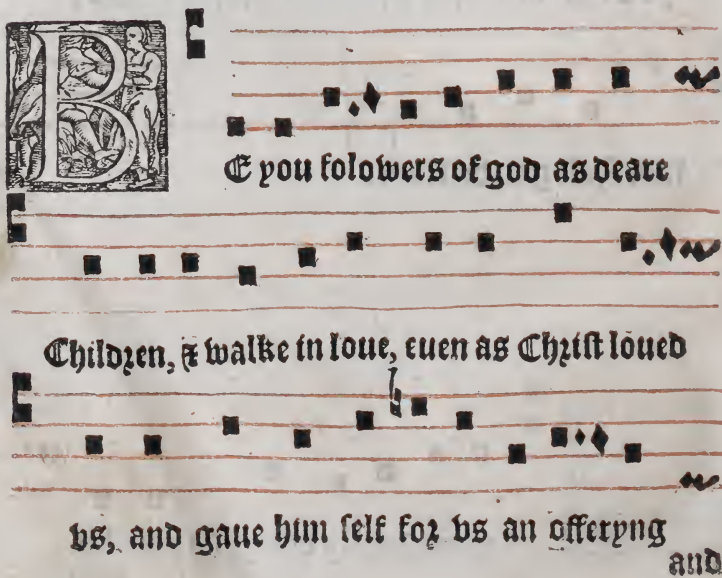 BE you folowers of god as deare
Children, & walke in loue, euen as Christ loued
vs, and gaue him self for vs an offeryng
and